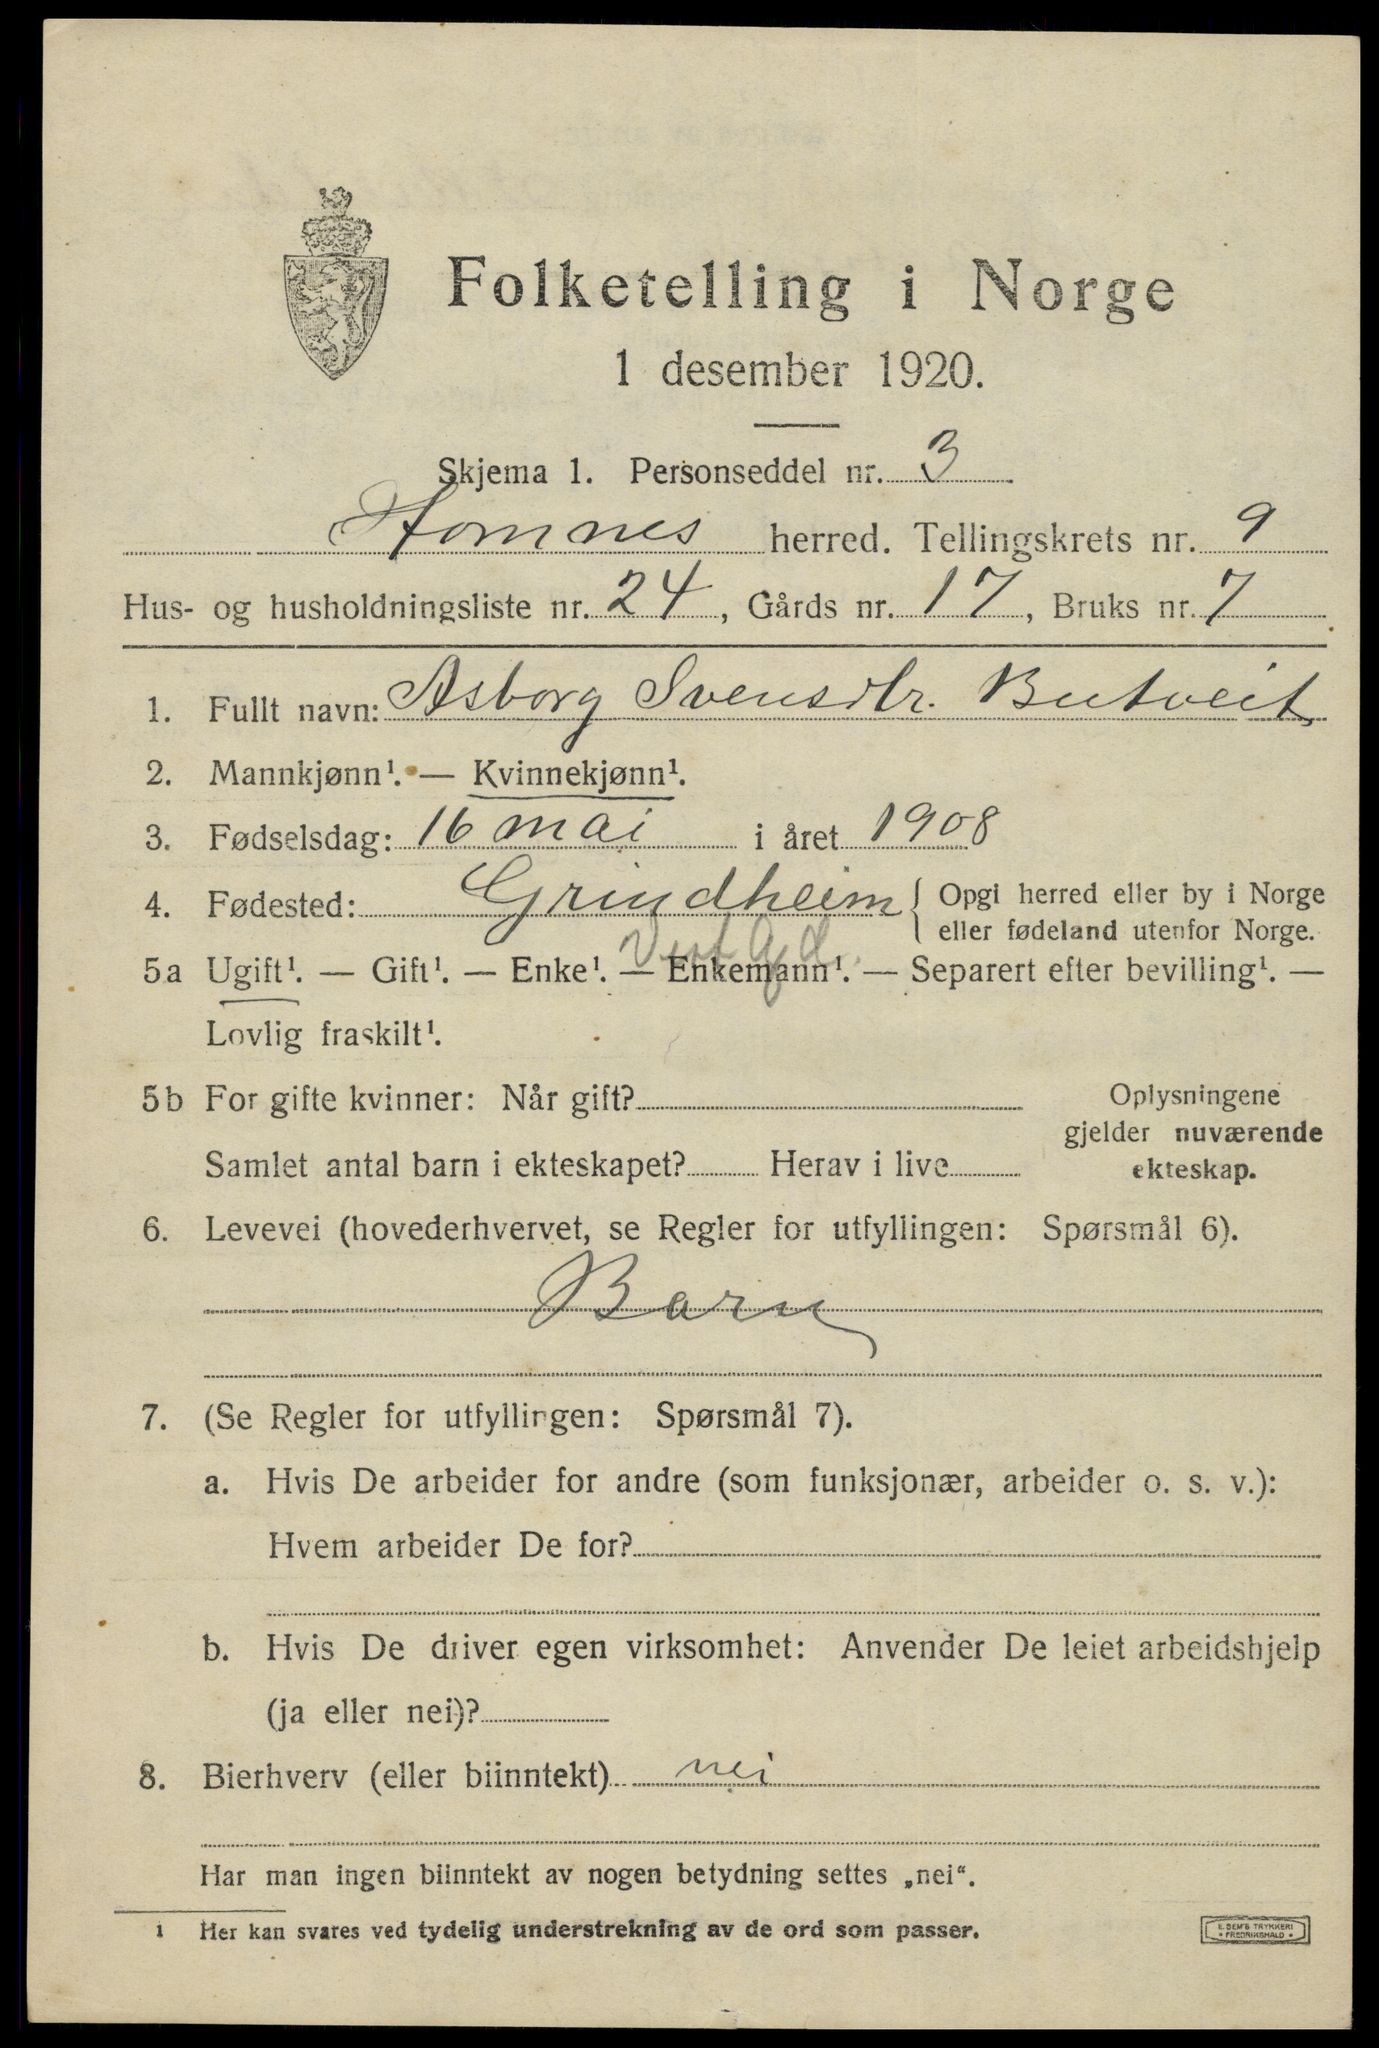 Folketelling i Norge
1 desember 1920.
Skjema 1. Personseddel nr. 3
Hornnes herred. Tellingskrets nr. 9
Hus- og husholdningsliste nr. 24, Gårds nr. 17, Bruks nr. 7
1. Fullt navn: Asborg Svensdtr. Butveit
2. Mannkjønn¹. — Kvinnekjønn¹.
3. Fødselsdag: 16 mai i året 1908
4. Fødested: Grindheim { Opgi herred eller by i Norge
eller fødeland utenfor Norge.
Vest Agd.
5a Ugift¹. — Gift¹. — Enke¹. — Enkemann¹. — Separert efter bevilling¹. —
Lovlig fraskilt¹.
5b For gifte kvinner: Når gift?
Samlet antal barn i ekteskapet? Herav i live
Oplysningene
gjelder nuværende
ekteskap.
6. Levevei (hovederhvervet, se Regler for utfyllingen: Spørsmål 6).
Barn
7. (Se Regler for utfyllingen: Spørsmål 7).
a. Hvis De arbeider for andre (som funksjonær, arbeider o. s. v.):
Hvem arbeider De for?
b. Hvis De driver egen virksomhet: Anvender De leiet arbeidshjelp
(ja eller nei)?
8. Bierhverv (eller biinntekt) nei
Har man ingen biinntekt av nogen betydning settes „nei“.
1 Her kan svares ved tydelig understrekning av de ord som passer.
E. SEM'S TRYKKERI
• FREDRIKSHALD •